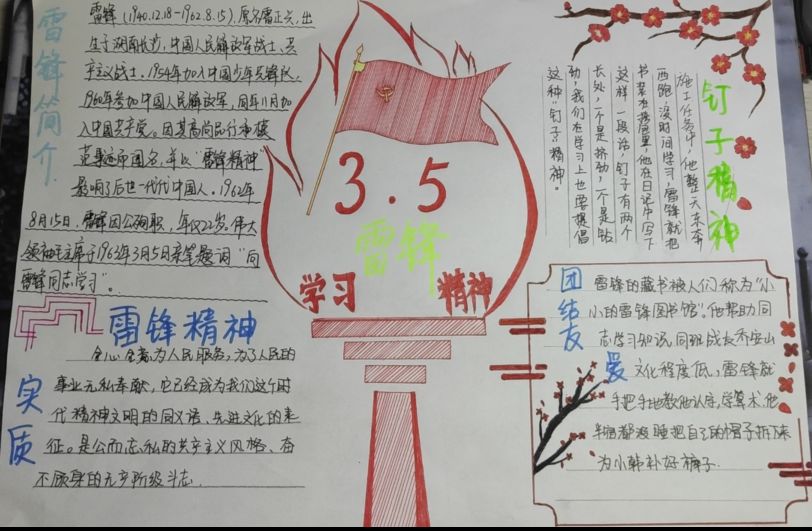 雷锋简介
雷锋(1940.12.18-1962.8.15),原名雷正兴,出
生于湖南长沙,中国人民解放军战士,共
产主义战士,1954年加入中国少年先锋队,
1960年参加中国人民解放军,同年11月加
入中国共产党。因其高尚品行和模
范事迹闻名,并以"雷锋精神"
影响了后世一代代中国人。1962年
8月15日,雷锋因公殉职,年仅22岁。伟大
领袖毛主席于1963年3月5日亲笔题词"向
雷锋同志学习"。
雷锋精神
实质
全心全意为人民服务,为了人民的
事业无私奉献,它已经成为我们这个时
代精神文明的同义语、先进文化的表
征。是公而忘私的共产主义风格、奋
不顾身的无产阶级斗志.
3.5
雷锋
学习
精神
钉子精神
施工任务中,他整天东奔
西跑,没时间学习,雷锋就把
书装在挎包里,他在日记中写下
这样一段话,钉子有两个
长处,一个是挤劲,一个是钻
劲,我们在学习上也要提倡
这种"钉子"精神。
团结友爱
雷锋的藏书被人们称为"小
小的雷锋图书馆",他帮助同
志学习知识,同班战友乔安山
文化程度低,雷锋就
手把手地教他认字,学算术.他
自己的帽子拆下来
为小韩补好裤子.